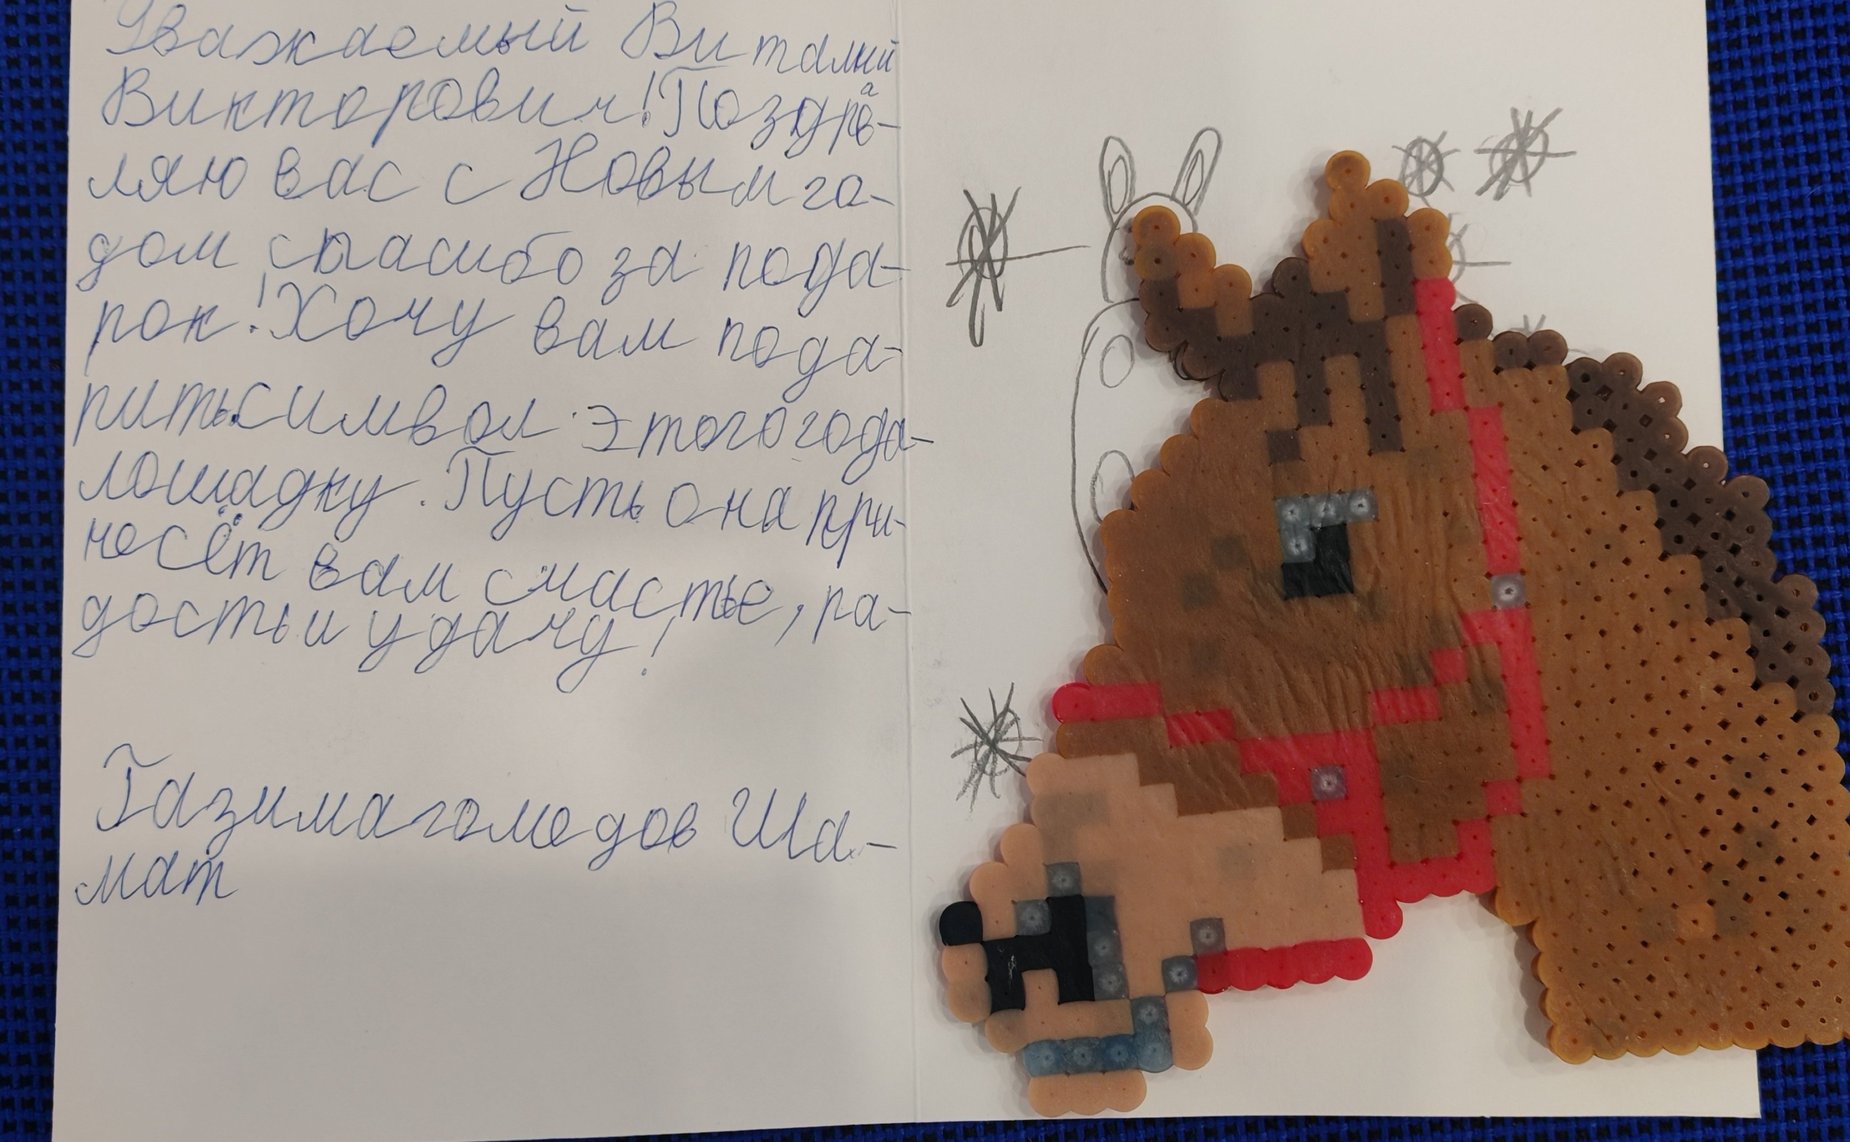 Уважаемый Виталий
Викторович! Поздрав-
ляю вас с Новым го-
дом спасибо за пода-
рок! Хочу вам пода-
рить символ этого года-
лошадку. Пусть она при-
несёт вам счастье, ра-
дость и удачу!
Газимагомедов Ша-
мат